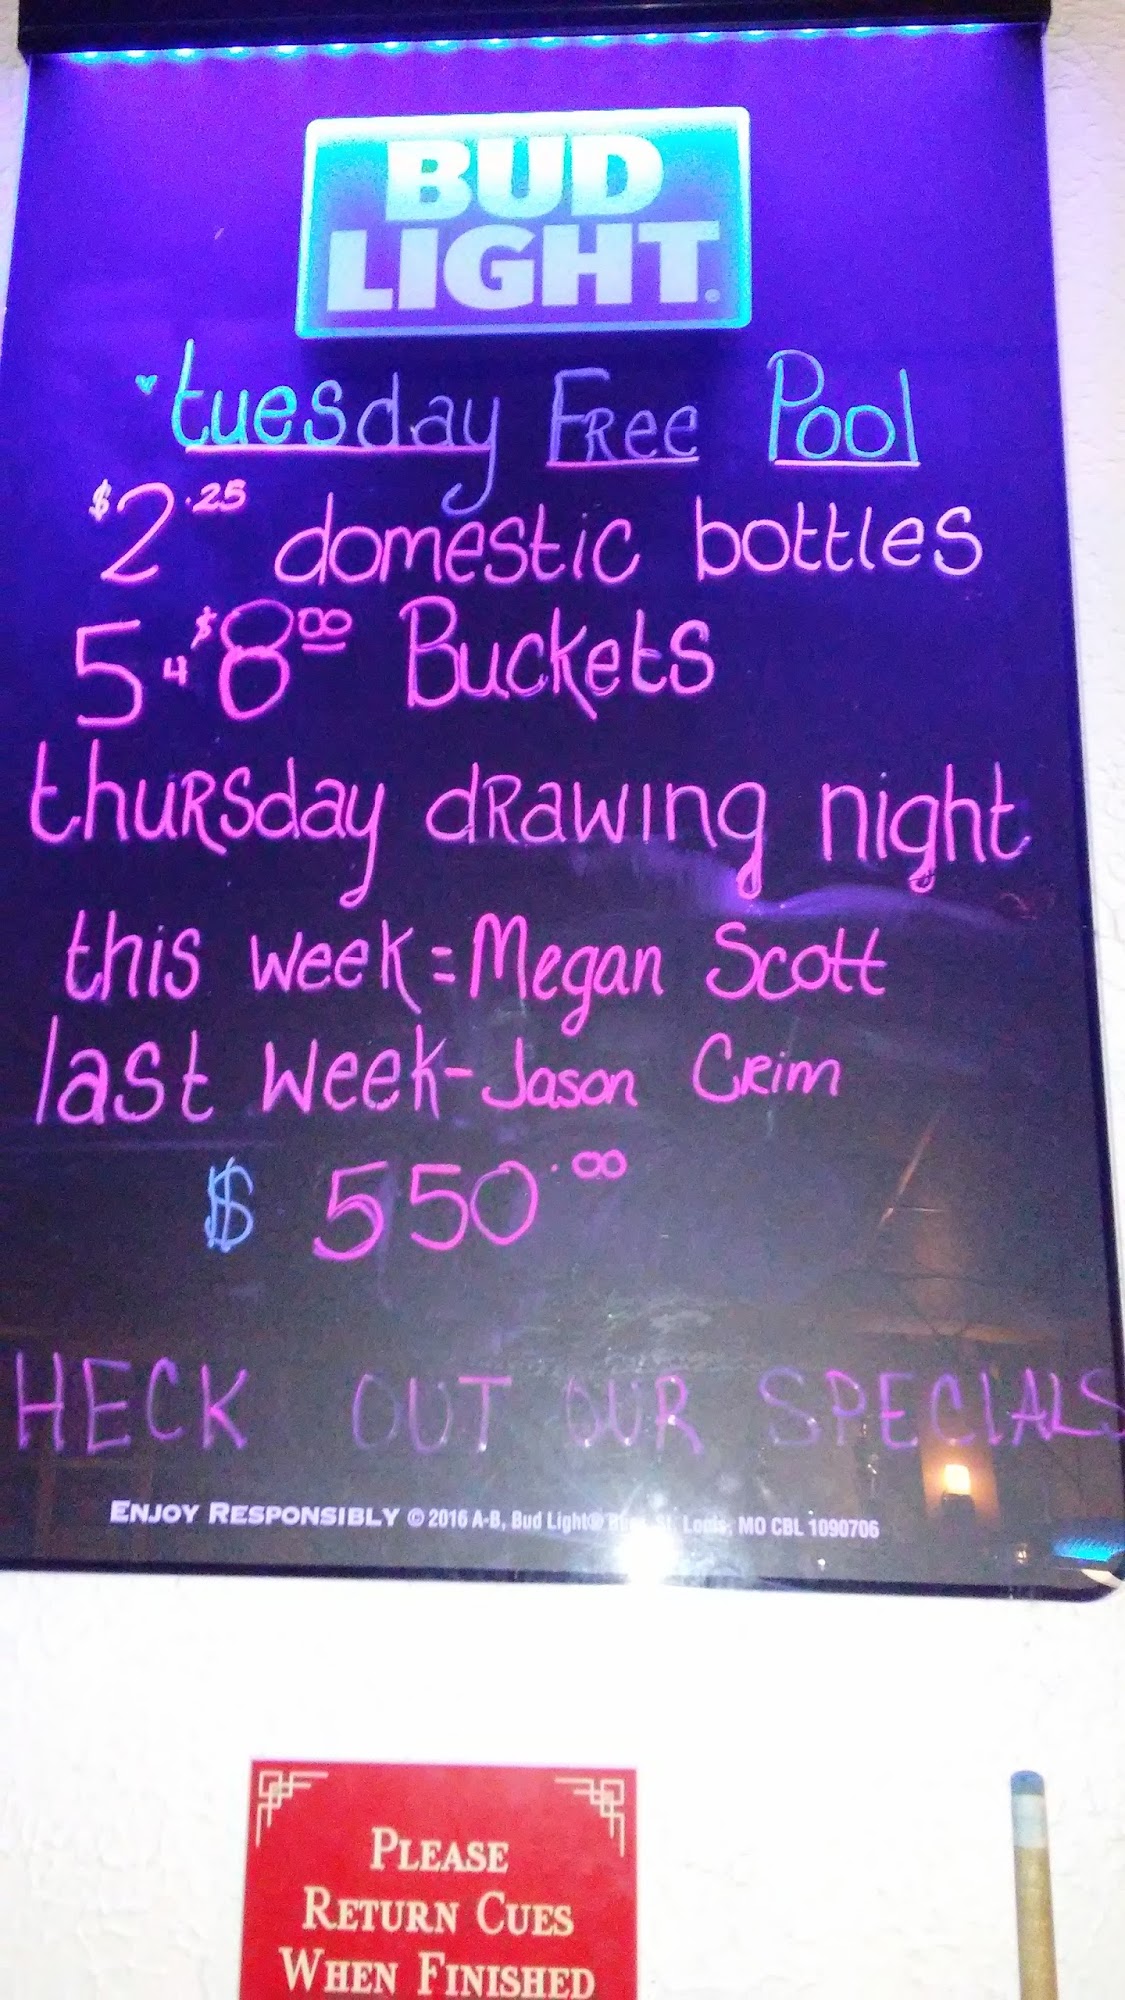 BUD
LIGHT.
tuesday Free Pool
$2.25 domestic bottles
5 4 $8.00 Buckets
thursday drawing night
this week = Megan Scott
last week - Jason Crim
$ 550.00
HECK OUT OUR SPECIALS
ENJOY RESPONSIBLY © 2016 A-B, Bud Light® St. Louis, MO CBL 1090706
PLEASE
RETURN CUES
WHEN FINISHED